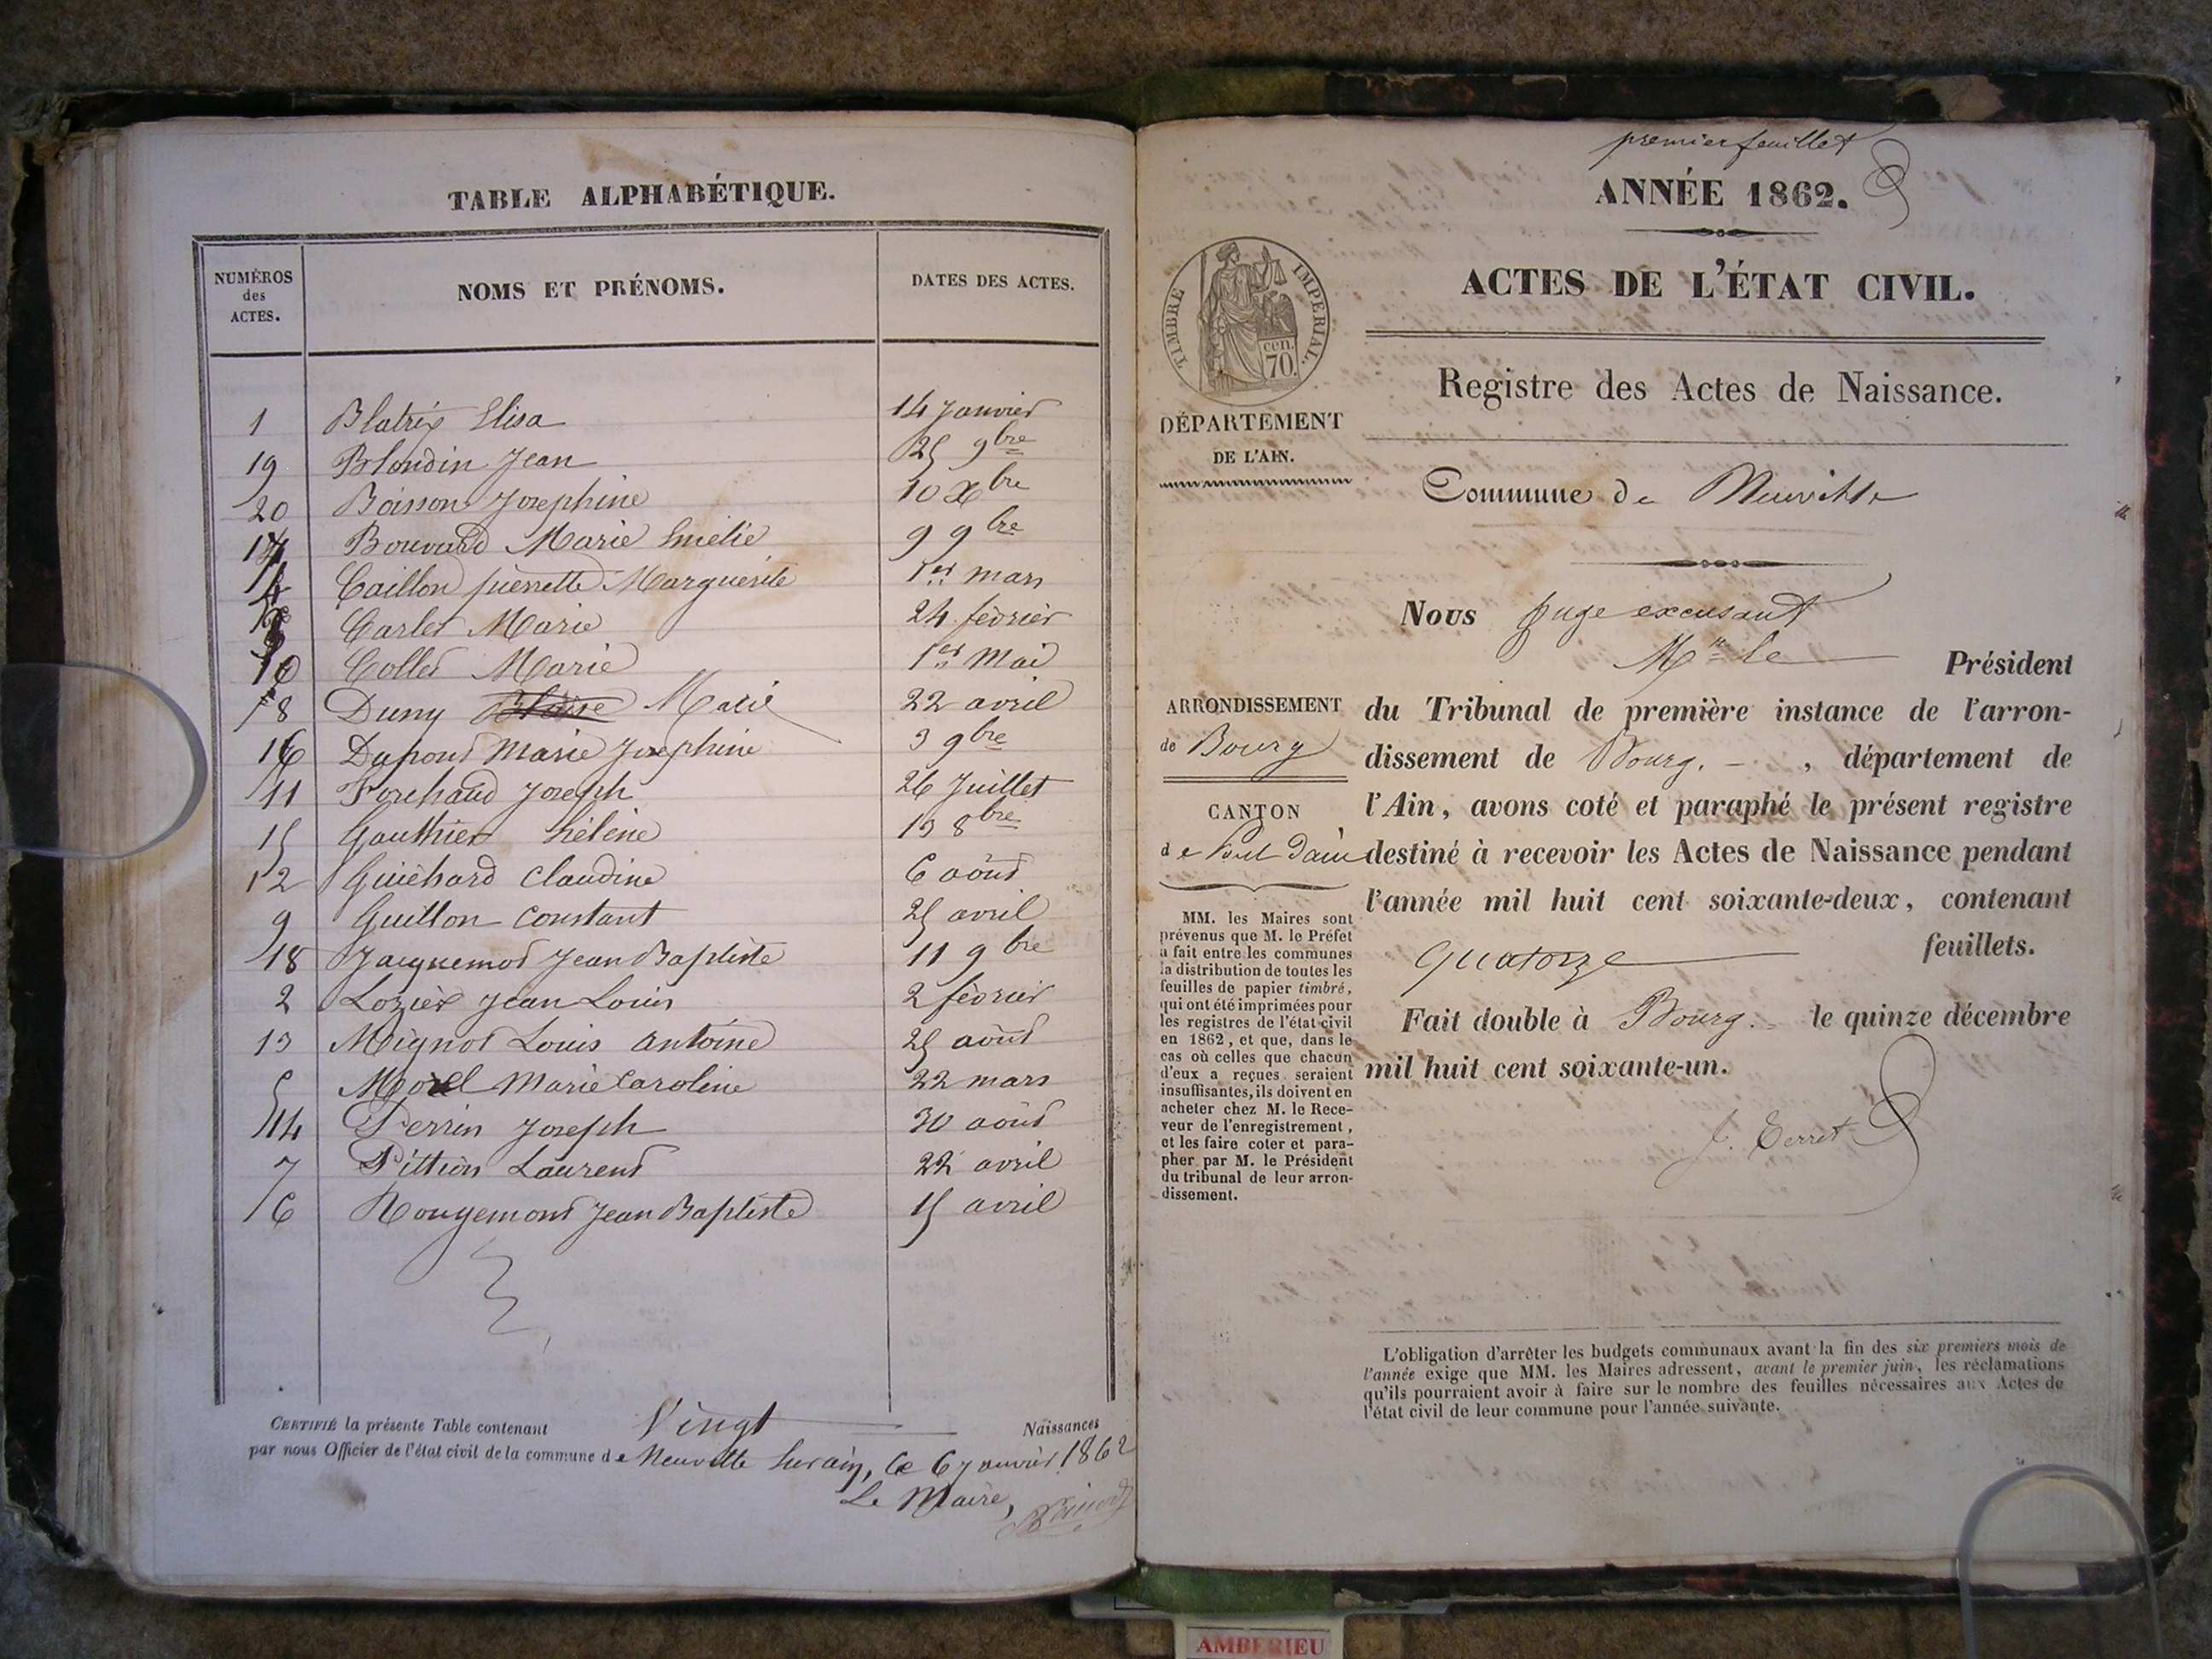 TABLE ALPHABÉTIQUE.
NUMÉROS des ACTES. NOMS ET PRÉNOMS. DATES DES ACTES.
1 Blatrix Elisa 14 Janvier
19 Blondin Jean 25 9bre
20 Boisson Josephine 10 Xbre
17 Bouvard Marie Emélie 9 9bre
4 Caillon pierrette Marguerite 1er mars
3 Carlet Marie 24 février
10 Collet Marie 1er Mai
8 Duny Marie 22 avril
16 Dupont Marie Josephine 3 9bre
11 Forchaud Joseph 26 Juillet
15 Gauthier héléne 13 8bre
12 Guichard Claudine 6 août
9 Guillon Constant 25 avril
18 Jacquemot Jean Baptiste 11 9bre
2 Lozier Jean Louis 2 février
13 Mignot Louis antoine 25 août
5 Morel Marie Caroline 22 mars
14 Perrin Joseph 30 août
7 Pittion Laurent 22 avril
6 Rougemont Jean Baptiste 15 avril
CERTIFIÉ la présente Table contenant Vingt Naissances
par nous Officier de l'état civil de la commune de Neuville sur ain, le 6 janvier 1862
Le Maire,
premier feuillet
ANNÉE 1862.
ACTES DE L'ÉTAT CIVIL.
Registre des Actes de Naissance.
TIMBRE IMPÉRIAL.
cen.
70.
DÉPARTEMENT
DE L'AIN.
Commune de Neuville
Nous Juge excusant
Mr le Président
du Tribunal de première instance de l'arron-
dissement de Bourg. , département de
l'Ain, avons coté et paraphé le présent registre
destiné à recevoir les Actes de Naissance pendant
l'année mil huit cent soixante-deux, contenant
quatorze feuillets.
Fait double à Bourg. le quinze décembre
mil huit cent soixante-un.
ARRONDISSEMENT
de Bourg
CANTON
de Pont d'ain
MM. les Maires sont
prévenus que M. le Préfet
a fait entre les communes
la distribution de toutes les
feuilles de papier timbré,
qui ont été imprimées pour
les registres de l'état civil
en 1862, et que, dans le
cas où celles que chacun
d'eux a reçues seraient
insuffisantes, ils doivent en
acheter chez M. le Rece-
veur de l'enregistrement,
et les faire coter et para-
pher par M. le Président
du tribunal de leur arron-
dissement.
L'obligation d'arrêter les budgets communaux avant la fin des six premiers mois de
l'année exige que MM. les Maires adressent, avant le premier juin, les réclamations
qu'ils pourraient avoir à faire sur le nombre des feuilles nécessaires aux Actes de
l'état civil de leur commune pour l'année suivante.
AMBERIEU